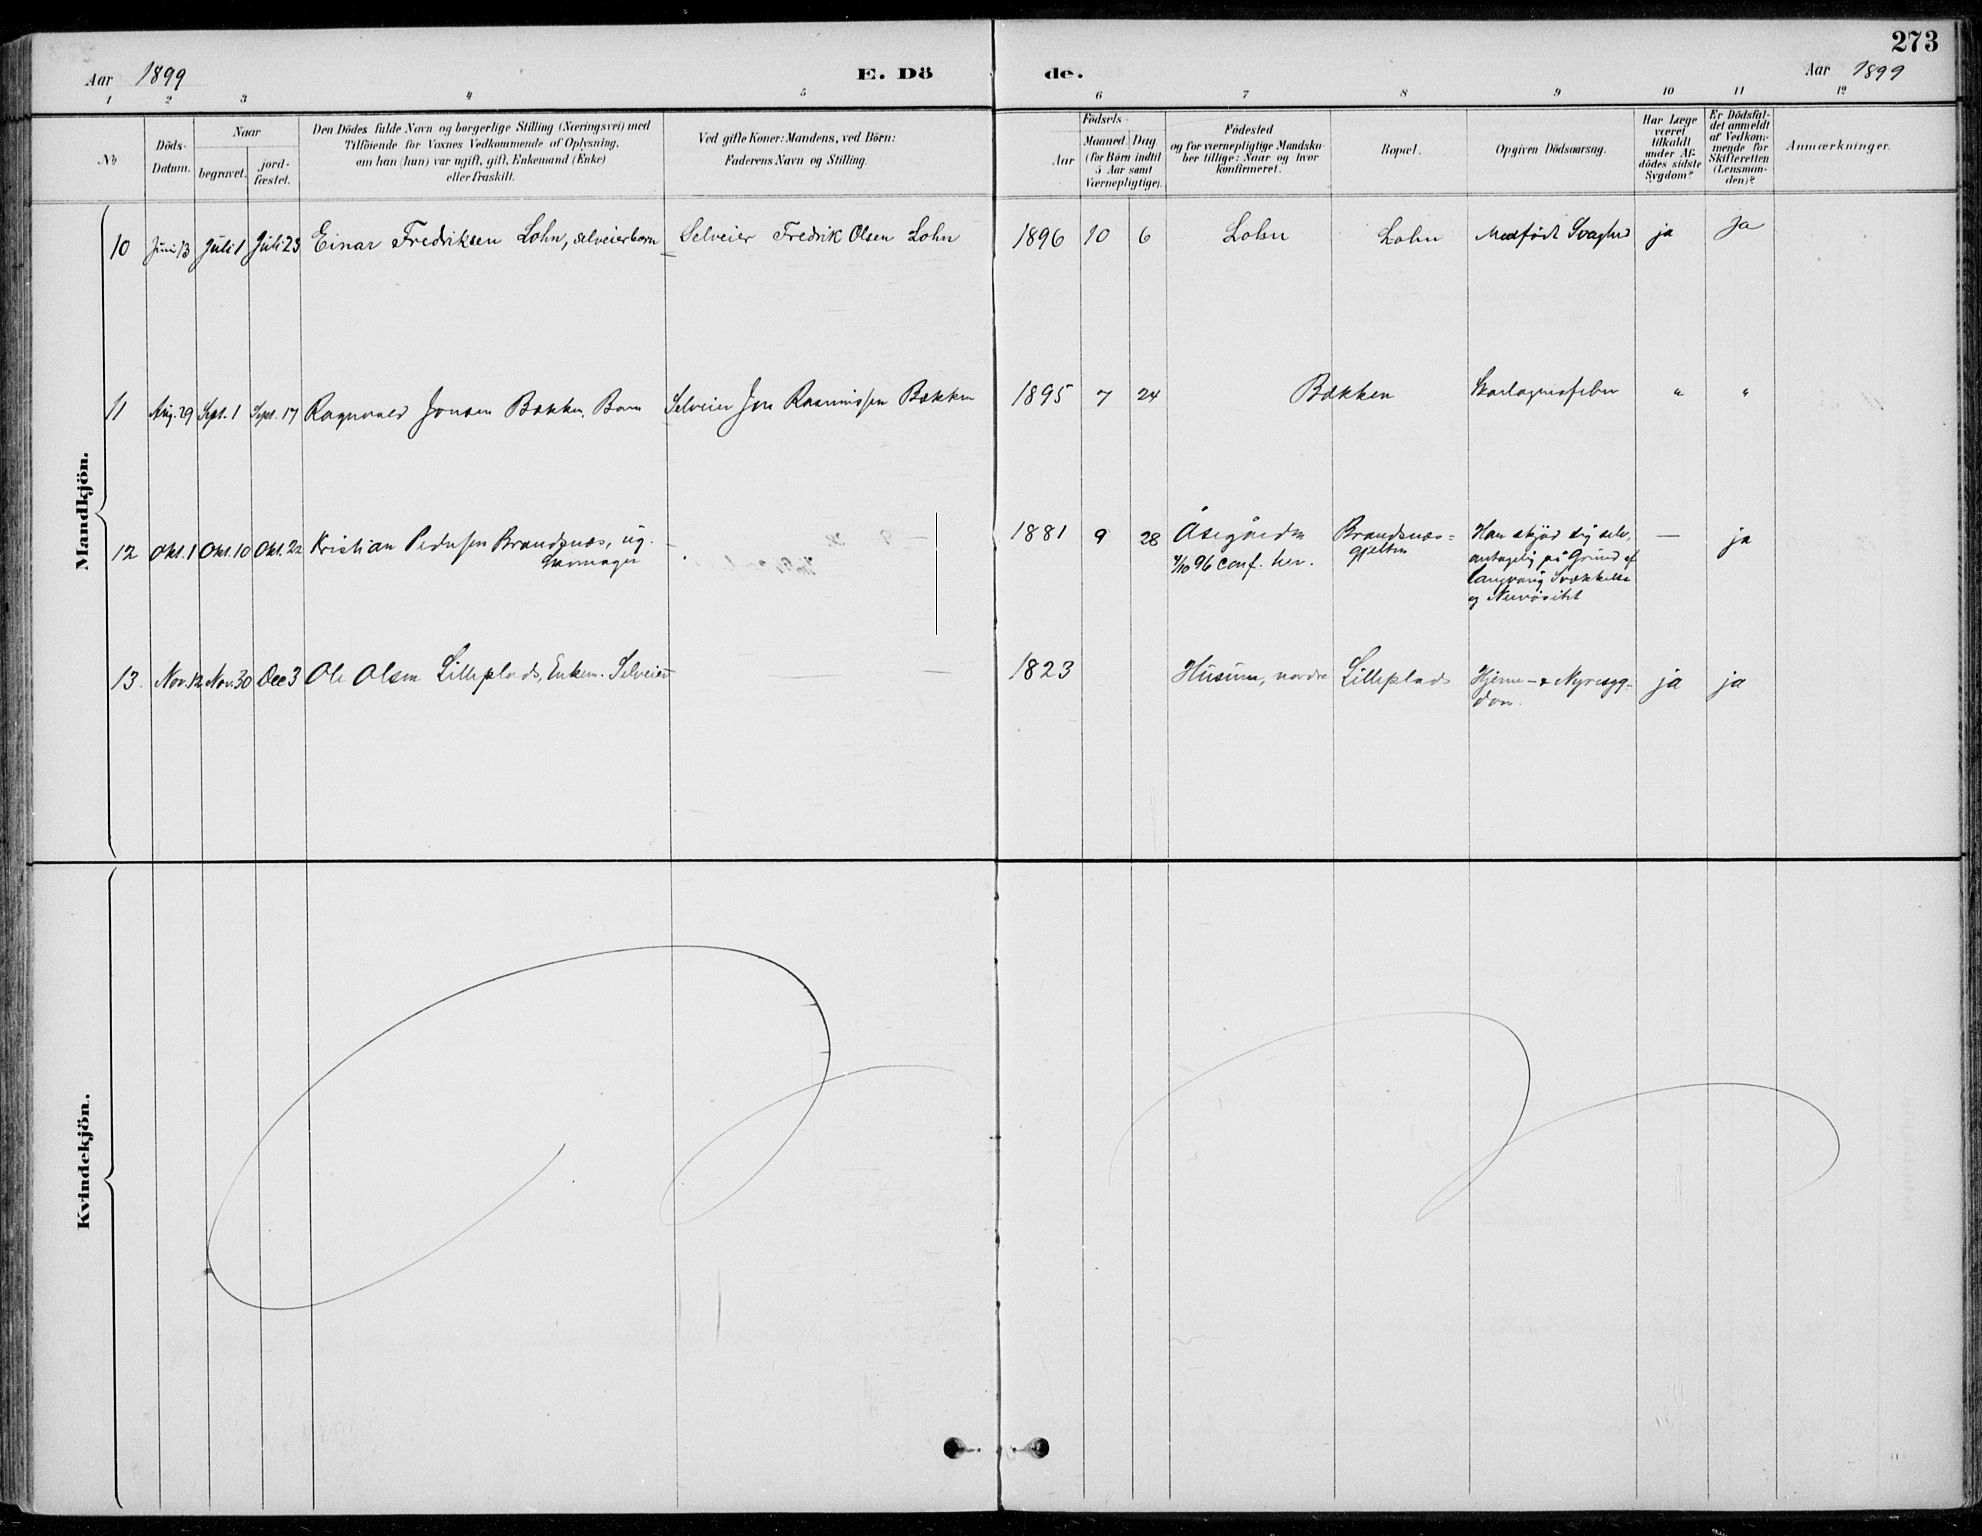 273
Aar 1899 E. Dö de. Aar 1899
1 2 3 4 5 6 7 8 9 10 11 12
№
Döds-
Datum.
Naar
begravet.
jord-
fæstet.
Den Dödes fulde Navn og borgerlige Stilling (Næringsvei) med
Tilföiende for Voxnes Vedkommende af Oplysning,
om han (hun) var ugift, gift, Enkemand (Enke)
eller fraskilt.
Ved gifte Koner: Mandens, ved Börn:
Faderens Navn og Stilling.
Födsels-
Aar
Maaned. Dag
(for Börn indtil
5 Aar samt
Værnepligtige).
Födested
og for værnepligtige Mandska-
ber tillige: Naar og hvor
konfirmeret.
Bopæl.
Opgiven Dödsaarsag.
Har Læge
været
tilkaldt
under Af-
dödes sidste
Sygdom?
Er Dödsfal-
det anmeldt
af Vedkom-
mende for
Skifteretten
(Lensman-
den)?
Anmærkninger.
Mandkjön.
10 Juni 13 Juli 1 Juli 23 Einar Fredriksen Lohn, selveierbarn Selveier Fredrik Olsen Lohn 1896 10 6 Lohn Lohn Medfødt Svaghed ja Ja
11 Aug. 29 Sept. 1 Sept. 17 Ragnvald Jonsen Bækken, Barn Selveier Jon Rasmussen Bækken 1895 7 24 Bækken Skarlagensfeber " "
12 Okt. 1 Okt. 10 Okt. 22 Kristian Pedersen Brandsnæs, ug. — 1881 9 28 Åsegården Brandsnæs- Han skjød sig selv, — ja
4/10 96 conf. her.
antagelig på Grund af
langvarig Svækkelse
og Nervøsitet
13. Nov. 12 Nov. 30 Dec 3 Ole Olsen Lilleplads, Enkem. Selveier — — 1823 Husum, nordre Lilleplads Hjerne- & Nyresyg- ja ja
dom.
Kvindekjön.